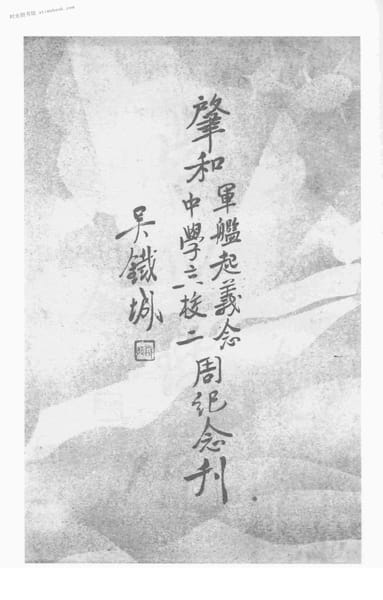 时光图书馆 stimebook.com
肇和
軍艦起義念
中學立校二
周紀念刊
吳鐵城